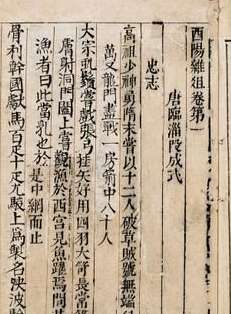 酉陽雜俎卷第一
唐臨淄段成式
忠志
高祖少神勇隋末嘗以十二人破草賊號無端
萬又龍門盡戰一房箭中八十人
太宗虬鬚嘗戲張弓挂矢好用四羽大箭長常
膚射洞門闔上嘗觀漁於西宮見魚躍焉問其
漁者曰此當乳也於是中網而止
骨利幹國獻馬百疋十疋尤駿上為製名決波